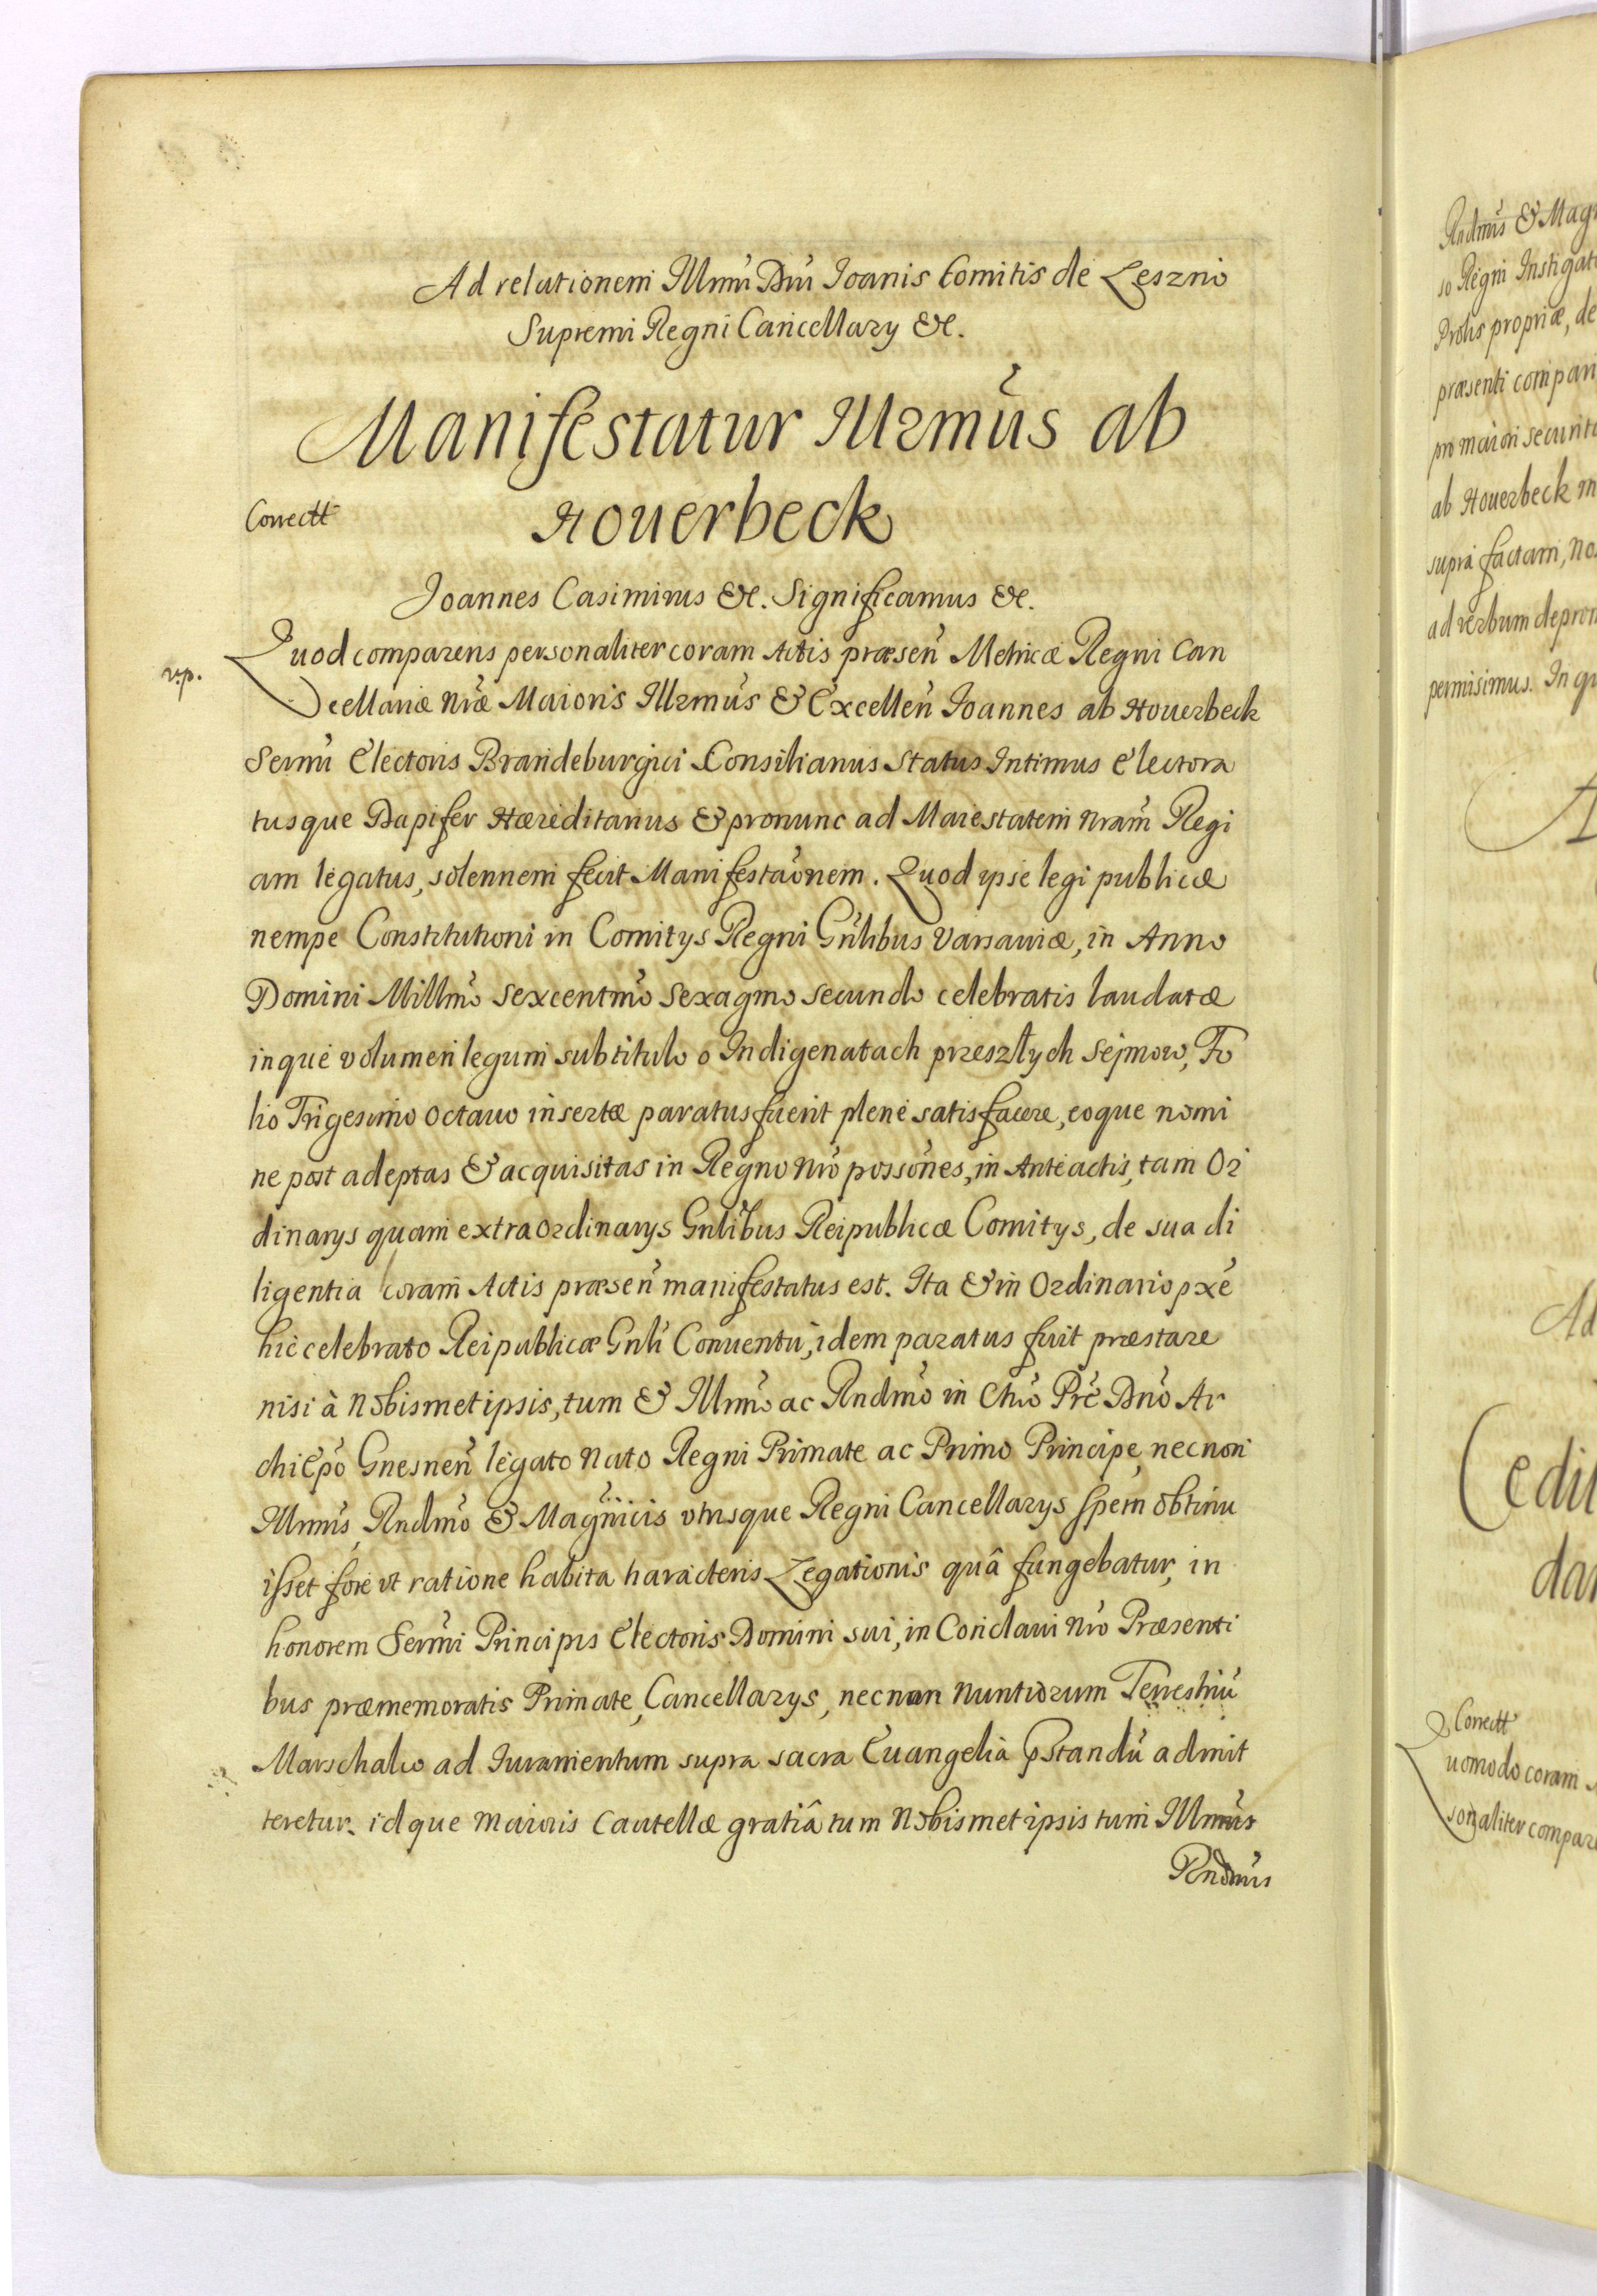 Ad relationem Illmi Dni Joanis Comitis de Leszno
Supremi Regni Cancellary &c.
Manifestatur Illrmus ab
Correctt
Houerbeck
Joannes Casimirus &c. Significamus &c.
v.p.
Quod comparens personaliter coram Actis præsen̄ Metricæ Regni Can
cellariæ nr̃æ Maioris Illrmus & Excellen̄ Joannes ab Houerbeck
Sermi Electoris Brandeburgici Consiliarius Status Intimus Electora
tusque Dapifer Hæreditarius & pronunc ad Maiestatem nram̃ Regi
am legatus, solennem fecit Manifestaõnem. Quod ipse legi publicæ
nempe Constitutioni in Comitys Regni Gñlibus Varsauiæ, in Anno
Domini Millmõ Sexcentmõ Sexagmo secundo celebratis laudatæ
inque volumen legum subtitulo o Indigenatach przeszłych Sejmow, Fo
lio Trigesimo octauo insertæ paratus fuerit plene satisfacere, eoque nomi
ne post adeptas & acquisitas in Regno nrõ possões, in Anteactis, tam Or
dinarys quam extraordinarys Gñlibus Reipublicæ Comitys, de sua di
ligentia coram Actis præsen̄ manifestatus est. Ita & in Ordinario pxẽ
hic celebrato Reipublicæ Gñli Conuentu, idem paratus fuit præstare
nisi à Nobismetipsis, tum & Illmõ ac Rndmõ in Chrõ Prẽ Dnõ Ar
chiEpõ Gnesnen̄ legato nato Regni Primate ac Primo Principe, necnon
Illmis, Rndmõ & Magñicis vtrusque Regni Cancellarys spem obtinu
isset fore vt ratione habita haracteris Legationis quâ fungebatur, in
honorem Sermi Principis Electoris Domini sui, in Conclaui nrõ Præsenti
bus præmemoratis Primate, Cancellarys, necnon Nuntiorum Terrestriũ
Marschalco ad Iuramentum supra sacra Euangelia p̃standũ admit
teretur. idque maioris cautellæ gratiâ tum Nobismet ipsis tum Illmus
Rndmus
Rndmus & Mag
so Regni Instigat
Prolis propriæ, de
præsenti compari
pro maiori securita
ab Houerbeck m
supra factam, no
ad verbum deprom
permisimus. In qu
A
Ad
Cedit
dar
Correctt
Quomodo coram
sonaliter compare